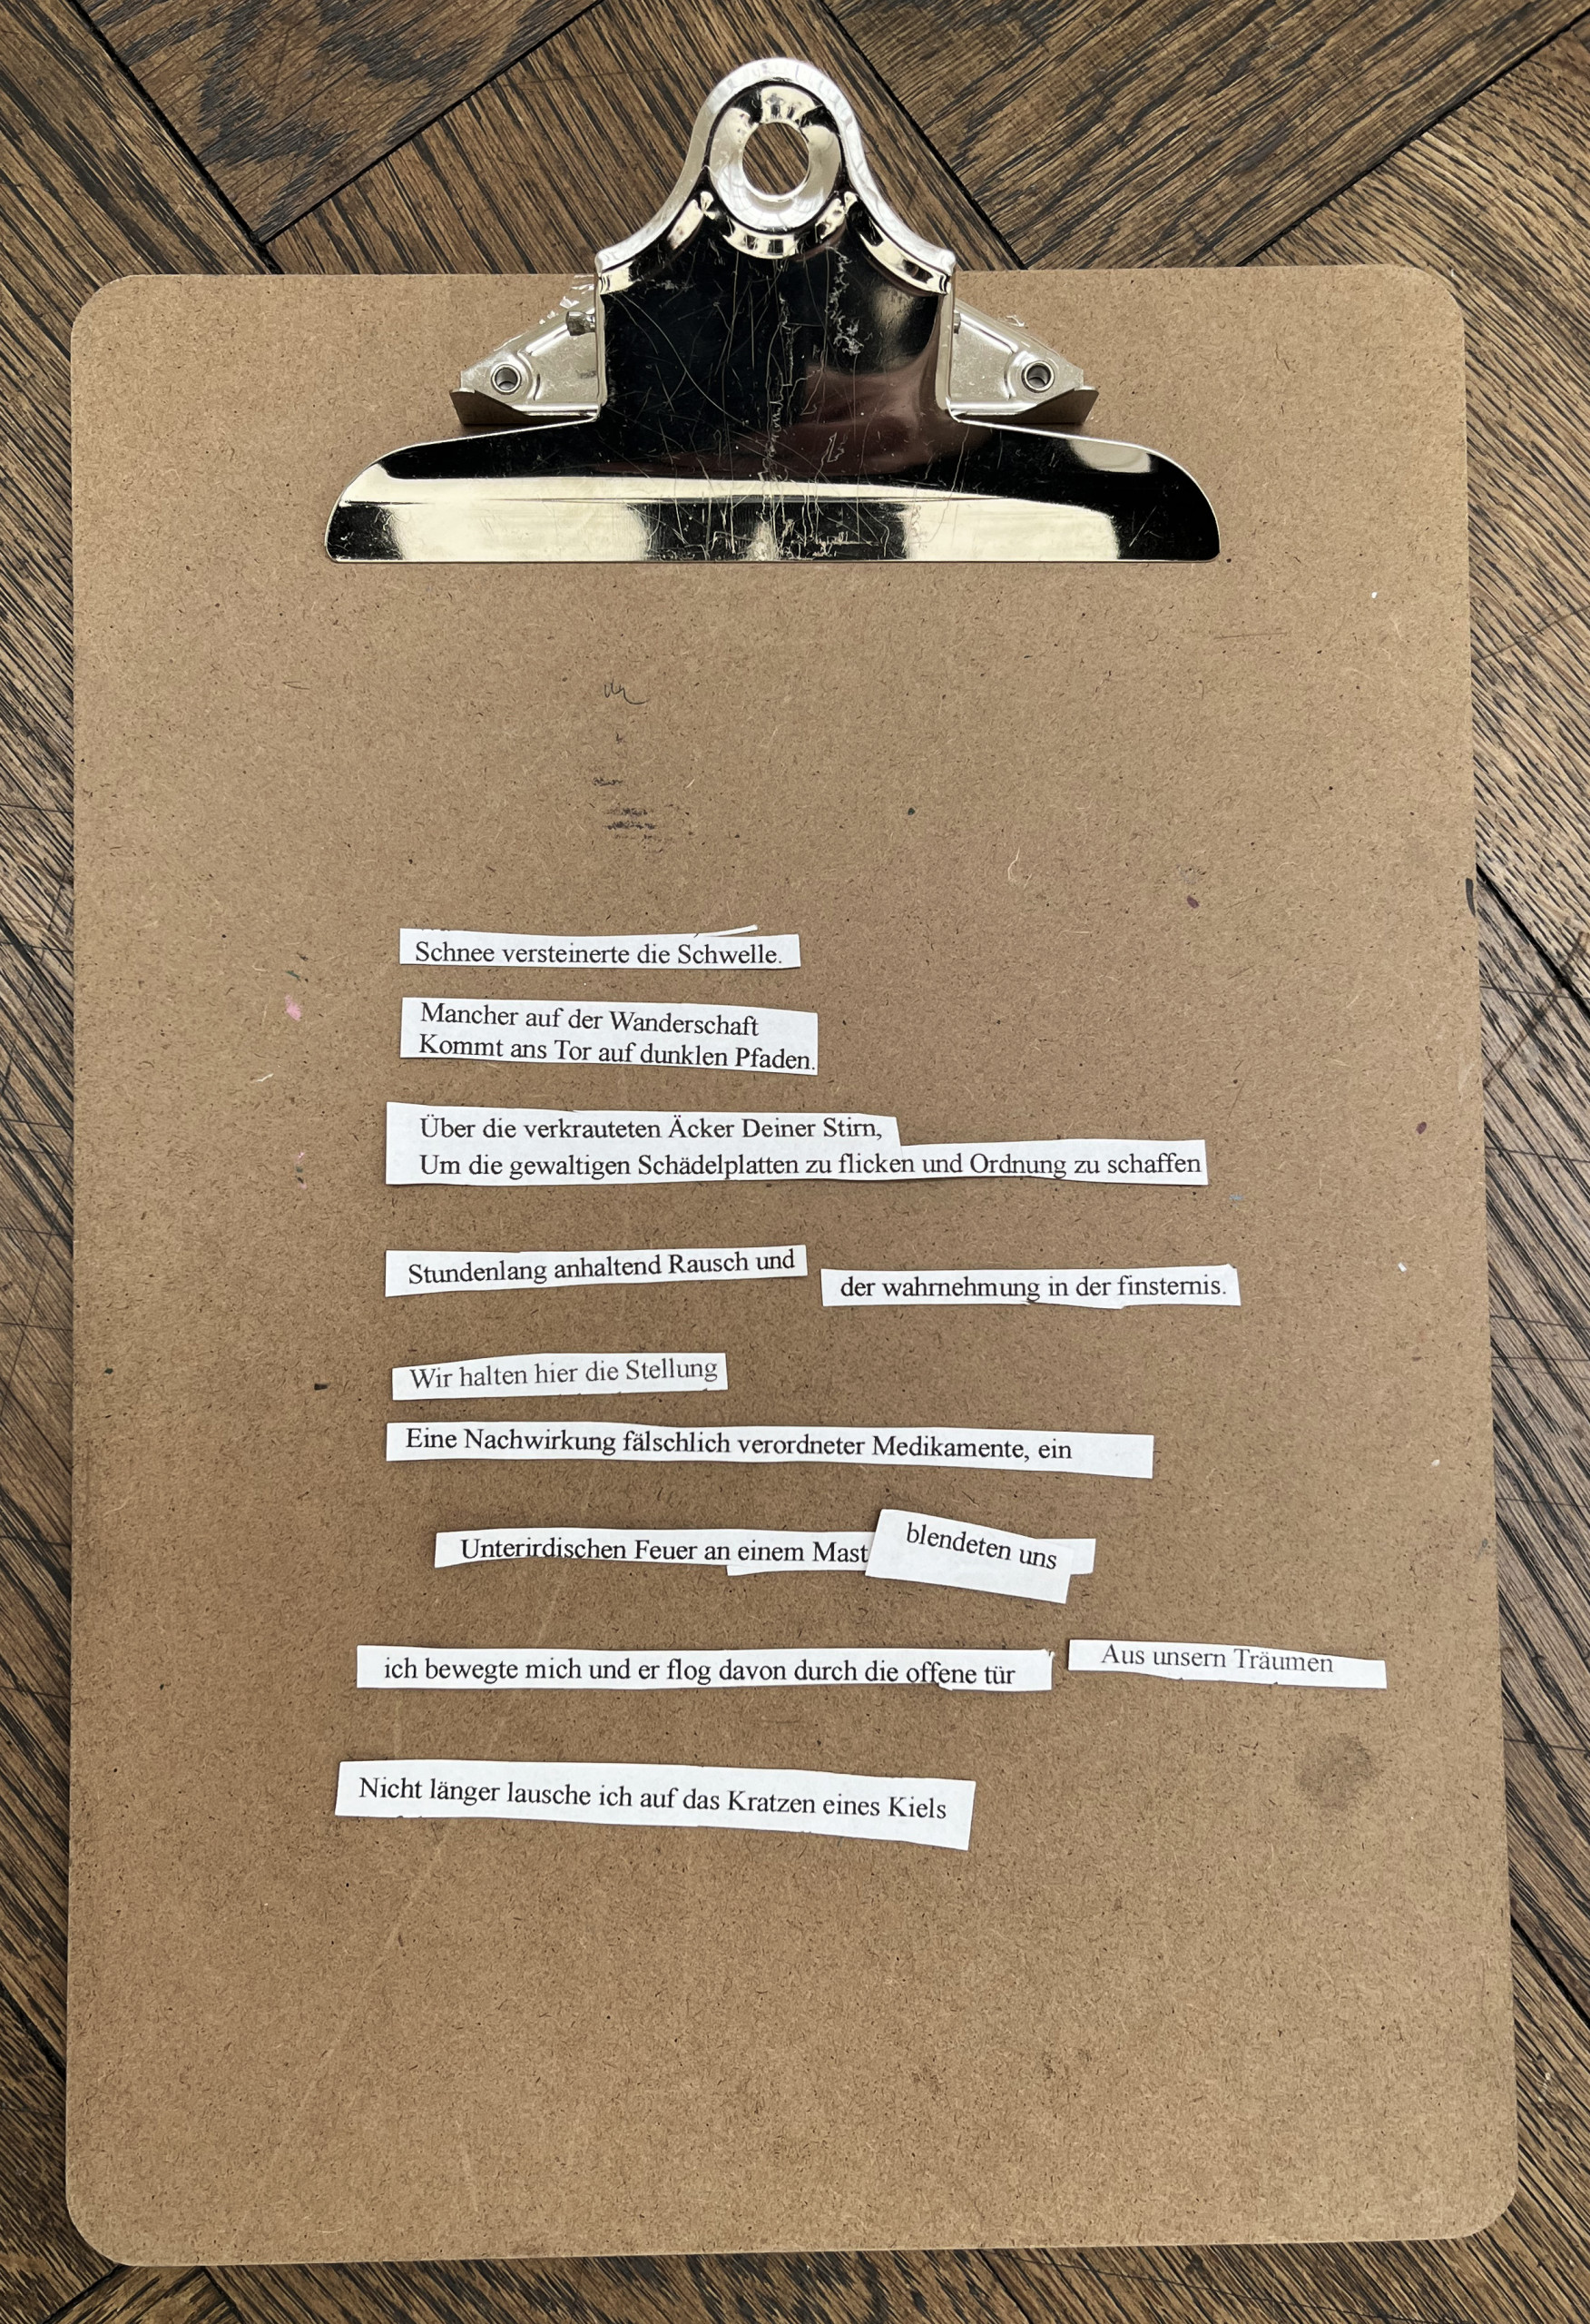 Schnee versteinerte die Schwelle.
Mancher auf der Wanderschaft
Kommt ans Tor auf dunklen Pfaden.
Über die verkrauteten Äcker Deiner Stirn,
Um die gewaltigen Schädelplatten zu flicken und Ordnung zu schaffen
Stundenlang anhaltend Rausch und der wahrnehmung in der finsternis.
Wir halten hier die Stellung
Eine Nachwirkung fälschlich verordneter Medikamente, ein
Unterirdischen Feuer an einem Mast blendeten uns
ich bewegte mich und er flog davon durch die offene tür Aus unsern Träumen
Nicht länger lausche ich auf das Kratzen eines Kiels